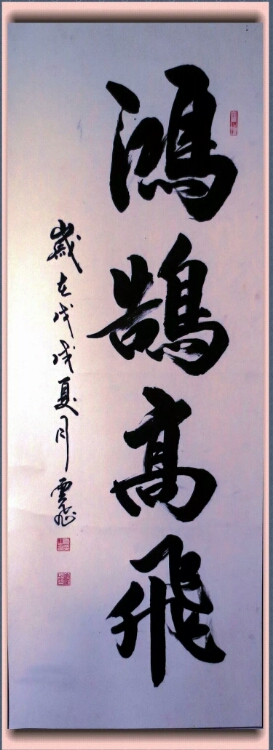 鴻鵠高飛
歲在戊戌夏月雲飛